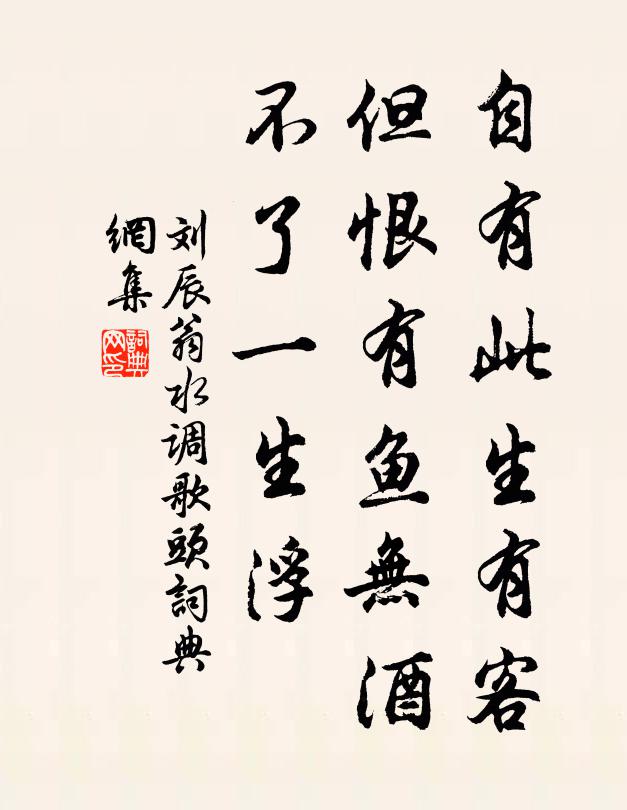 自有此生有客
但恨有鱼無酒
不了一生浮
刘辰翁水调歌頭詞典
網集
詞典
网印